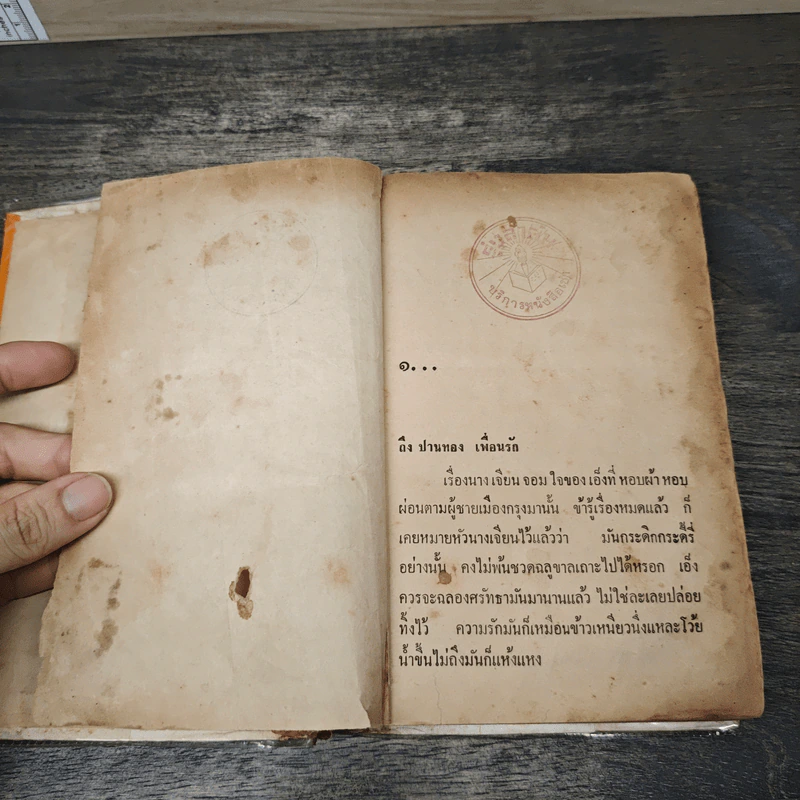 บริการหนังสือเช่า
๑...
ถึง ปานทอง เพื่อนรัก
เรื่องนางเจียน จอม ใจของ เอ็งที่ หอบผ้า หอบ
ผ่อนตามผู้ชายเมืองกรุงมานั้น ข้ารู้เรื่องหมดแล้ว ก็
เคยหมายหัวนางเจียนไว้แล้วว่า มันกระดิกกระดี้รี่
อย่างนั้น คงไม่พ้นชวดฉลูขาลเถาะไปได้หรอก เอ็ง
ควรจะฉลองศรัทธามันมานานแล้ว ไม่ใช่ละเลยปล่อย
ทิ้งไว้ ความรักมันก็เหมือนข้าวเหนียวนึ่งแหละโว้ย
น้ำขึ้นไม่ถึงมันก็แห้งแหง